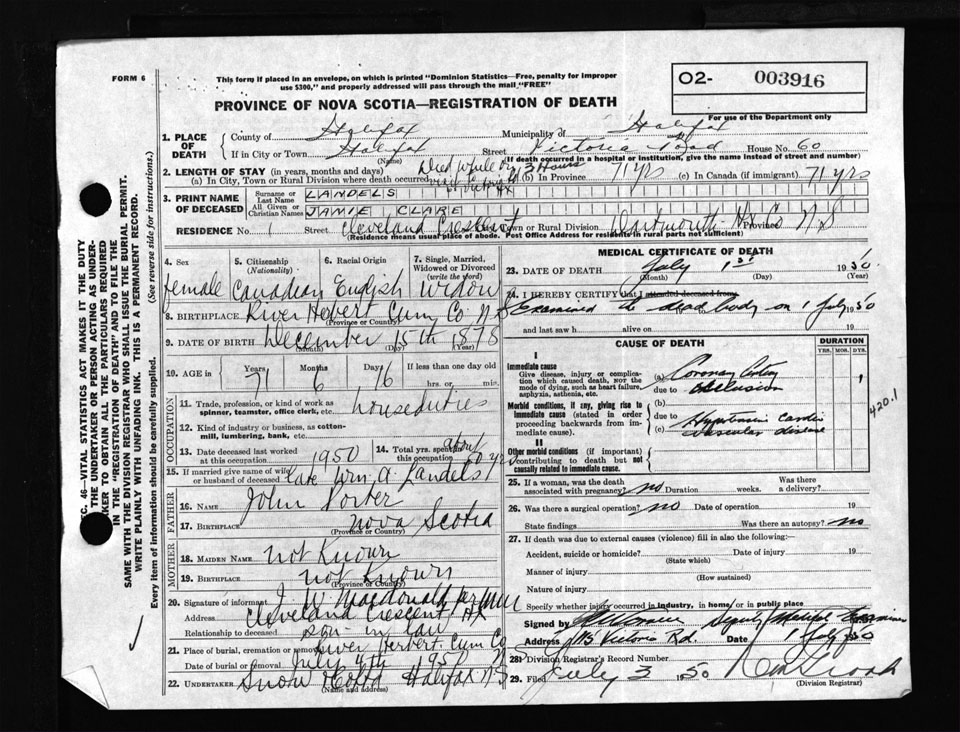 FORM 6
This form if placed in an envelope, on which is printed "Dominion Statistics—Free, penalty for improper
use $300," and properly addressed will pass through the mail "FREE"
O2- 003916
For use of the Department only
PROVINCE OF NOVA SCOTIA—REGISTRATION OF DEATH
1. PLACE OF DEATH
County of Halifax Municipality of Halifax
If in City or Town Halifax Street Victoria Road House No. 60
(Name) (If death occurred in a hospital or institution, give the name instead of street and number)
2. LENGTH OF STAY (in years, months and days) Died while 3 Hours
(a) In City, Town or Rural Division where death occurred (b) In Province 71 yrs (c) In Canada (if immigrant) 71 yrs
3. PRINT NAME OF DECEASED
Surname or Last Name LANDELS
All Given or Christian Names JAMIE CLARE
RESIDENCE No. 1 Street Cleveland Crescent Town or Rural Division Dartmouth Hx Co Province N.S
(Residence means usual place of abode. Post Office Address for residents in rural parts not sufficient)
4. Sex
female
5. Citizenship (Nationality)
Canadian
6. Racial Origin
English
7. Single, Married, Widowed or Divorced (write the word)
Widow
8. BIRTHPLACE River Hebert Cum Co N S
(Province or Country)
9. DATE OF BIRTH December 15th 1878
(Month) (Day) (Year)
10. AGE in Years 71 Months 6 Days 16 If less than one day old
hrs. or min.
OCCUPATION
11. Trade, profession, or kind of work as
spinner, teamster, office clerk, etc. house duties
12. Kind of industry or business, as cotton-
mill, lumbering, bank, etc.
13. Date deceased last worked
at this occupation 1950
14. Total yrs. spent in
this occupation about 50 yrs
15. If married give name of wife
or husband of deceased late Wm. A. Landels
FATHER
16. NAME John Porter
17. BIRTHPLACE Nova Scotia
(Province or Country)
MOTHER
18. MAIDEN NAME not Known
19. BIRTHPLACE not Known
(Province or Country)
20. Signature of informant J. W. Macdonald
Address Cleveland Crescent Hx
Relationship to deceased son-in-law
21. Place of burial, cremation or removal River Herbert Cum Co N S
Date of burial or removal July 4th 1950
22. UNDERTAKER Snow & Co Ltd Halifax N.S
(Name and address)
MEDICAL CERTIFICATE OF DEATH
23. DATE OF DEATH July 1st 1950
(Month) (Day) (Year)
24. I HEREBY CERTIFY that I attended deceased from
Examined the dead body on 1 July 50
and last saw h alive on 19
CAUSE OF DEATH
DURATION
YRS. MOS. DYS.
I
Immediate cause
Give disease, injury or complica-
tion which caused death, NOT the
mode of dying, such as heart failure,
asphyxia, asthenia, etc.
(a) Coronary Artery
due to Occlusion
1
Morbid conditions, if any, giving rise to
immediate cause (stated in order
proceeding backwards from im-
mediate cause).
(b)
due to
(c) Hypertensive cardio
vascular disease
420.1
II
Other morbid conditions (if important)
contributing to death but not
causally related to immediate cause.
25. If a woman, was the death
associated with pregnancy? no Duration weeks. Was there
a delivery?
26. Was there a surgical operation? no Date of operation 19
State findings Was there an autopsy? no
27. If death was due to external causes (violence) fill in also the following:
Accident, suicide or homicide? Date of injury 19
(State which)
Manner of injury
(How sustained)
Nature of injury
Specify whether injury occurred in industry, in home, or in public place
Signed by Deputy Medical Examiner
Address 113 Victoria Rd. Date 1 July 1950
28. Division Registrar's Record Number
29. Filed July 3 1950
(Division Registrar)
SEC. 46—VITAL STATISTICS ACT MAKES IT THE DUTY
OF THE UNDERTAKER OR PERSON ACTING AS UNDER-
TAKER TO OBTAIN ALL THE PARTICULARS REQUIRED
IN THE "REGISTRATION OF DEATH" AND TO FILE THE
SAME WITH THE DIVISION REGISTRAR WHO SHALL ISSUE THE BURIAL PERMIT.
WRITE PLAINLY WITH UNFADING INK. THIS IS A PERMANENT RECORD.
Every item of information should be carefully supplied. (See reverse side for instructions.)